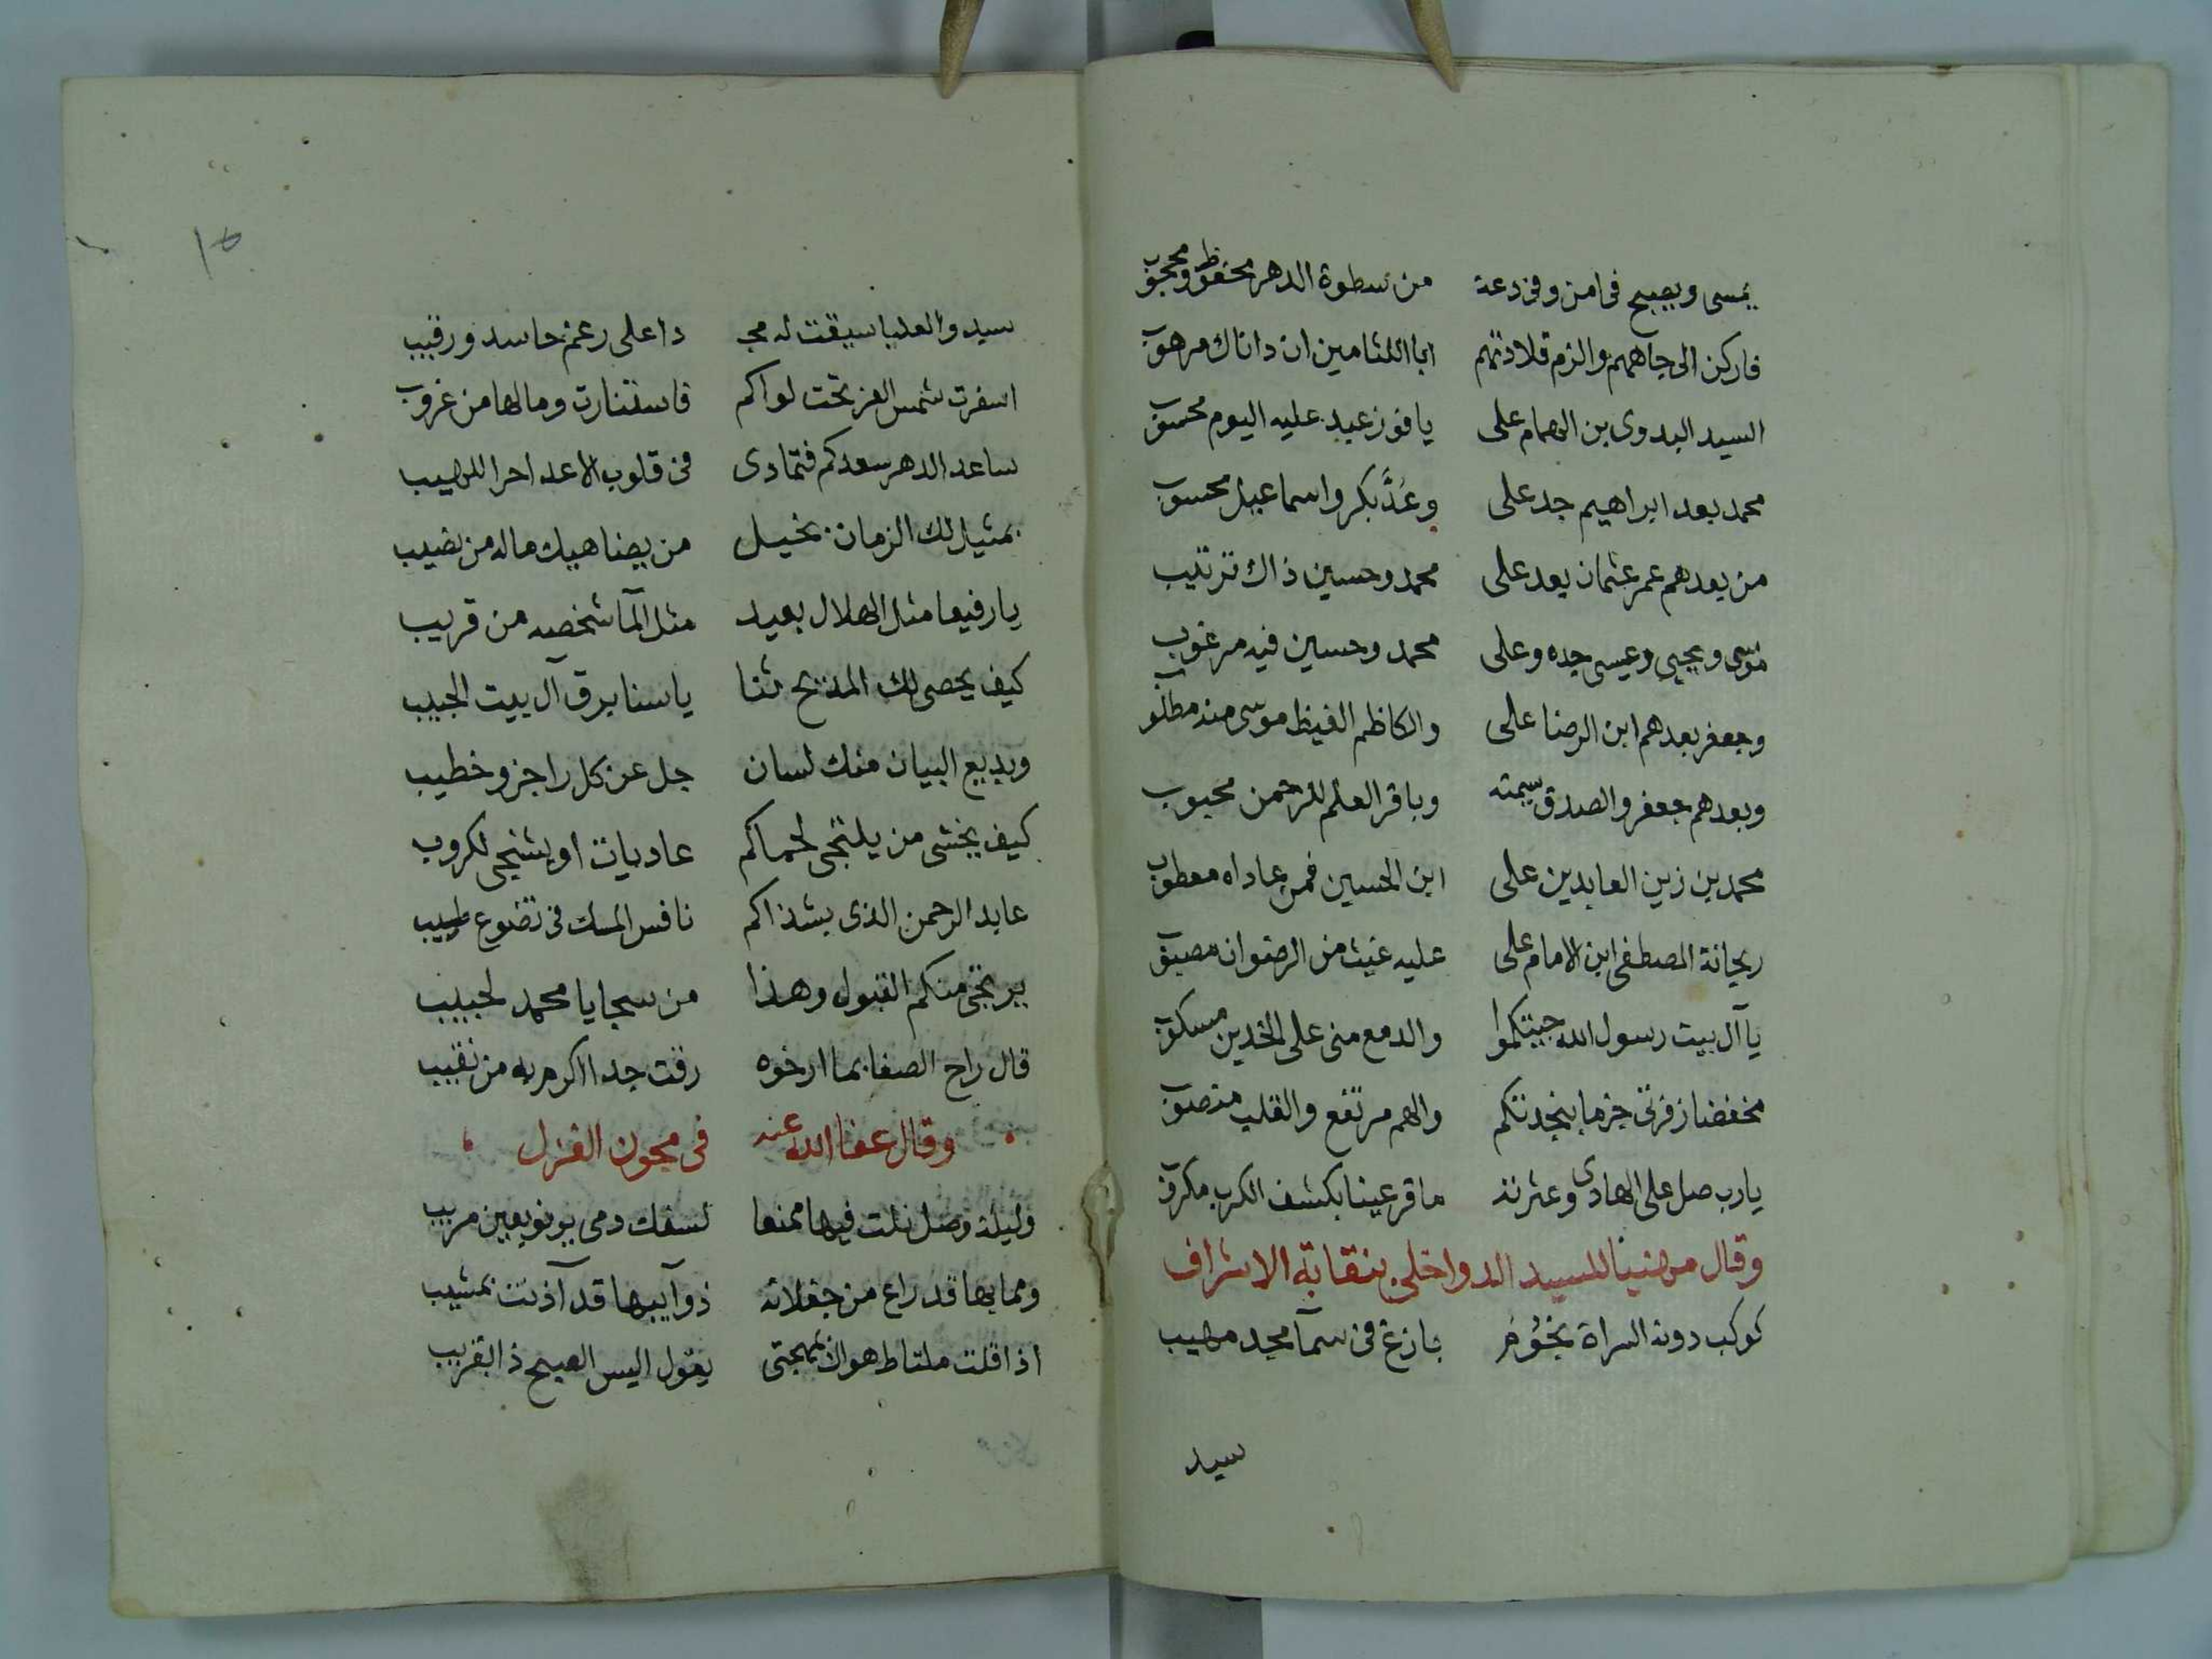 يمسى ويصبح فى امن وفى دعة من سطوة الدهر محفوظ ومحجوب
فاركن الى جاههم والزم قلادتهم ابا اللثامين ان داناك مرهوب
السيد البدوى بن الهمام على يا فوز عبد عليه اليوم محسوب
محمد بعد ابراهيم جد على وعُدَّ بكر واسماعيل محسوب
من بعدهم عمر عثمان بعد على محمد وحسين ذاك ترتيب
موسى ويحيى وعيسى جده وعلى محمد وحسين فيه مرغوب
وجعفر بعدهم ابن الرضا على والكاظم الغيظ موسى منه مطلوب
وبعدهم جعفر والصدق سيمته وباقر العلم للرحمن محبوب
محمد بن زين العابدين على ابن الحسين فمن عاداه معطوب
ريحانة المصطفى ابن الامام على عليه غيث من الرضوان مصبوب
يا آل بيت رسول الله جيتكموا والدمع منى على الخدين مسكوب
مخفضا زفرتى جزما بنجدتكم والهم مرتفع والقلب منصوب
يارب صل على الهادى وعترته ما قر عينا بكشف الكرب مكروب
وقال مهنيا للسيد الدواخلى بنقابة الاشراف
كوكب دونه السراة نجُوُم بازغ فى سمآ مجد مهيب
سيد
١٥
سيد والعليا سيقت له مجـ دا على رغم حاسد ورقيب
اسفرت شمس العز تحت لواكم فاستنارت ومالها من غروب
ساعد الدهر سعدكم فتمادى فى قلوب الاعدا حر اللهيب
بمثيل لك الزمان بخيل من يضاهيك ماله من نصيب
يا رفيعا مثل الهلال بعيد مثل المآ شخصه من قريب
كيف يحصى لك المديح ثنا يا سنا برق آل بيت الحبيب
وبديع البيان منك لسان جل عن كل راجز وخطيب
كيف يخشى من يلتجى لحماكم عاديات او يشتجى لكروب
عابد الرحمن الذى بشذاكم نافس المسك فى تضوع طيب
يرتجى منكم القبول وهذا من سجايا محمد لحبيب
قال راح الصفا بما ارخوه رقت جدا اكرم به من نقيب
وقال عفا الله عنه فى مجون الغزل
وليلة وصل نلت فيها ممنعا لسفك دمى يرنو بعين مريب
ومما بها قد راع من جفلاته ذوآيبها قد آذنت بمشيب
اذا قلت ملتاط هواك بمهجتى يقول اليس الصبح ذا بقريب